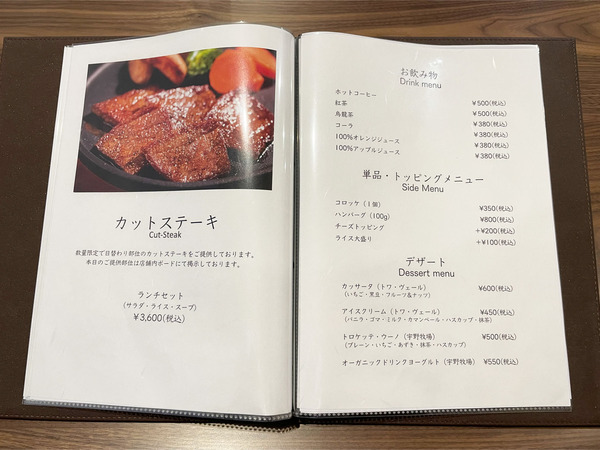 カットステーキ
Cut-Steak
数量限定で日替わり部位のカットステーキをご提供しております。
本日のご提供部位は店舗内ボードにて掲示しております。
ランチセット
(サラダ・ライス・スープ)
¥3,600(税込)
お飲み物
Drink menu
ホットコーヒー ¥500(税込)
紅茶 ¥500(税込)
烏龍茶 ¥380(税込)
コーラ ¥380(税込)
100%オレンジジュース ¥380(税込)
100%アップルジュース ¥380(税込)
単品・トッピングメニュー
Side Menu
コロッケ (1個) ¥350(税込)
ハンバーグ (100g) ¥800(税込)
チーズトッピング +¥200(税込)
ライス大盛り +¥100(税込)
デザート
Dessert menu
カッサータ (トワ・ヴェール) ¥600(税込)
(いちご・黒豆・フルーツ&ナッツ)
アイスクリーム (トワ・ヴェール) ¥450(税込)
(バニラ・ゴマ・ミルク・カマンベール・ハスカップ・抹茶)
トロケッテ・ウーノ (宇野牧場) ¥500(税込)
(プレーン・いちご・あずき・抹茶・ハスカップ)
オーガニックドリンクヨーグルト (宇野牧場) ¥550(税込)